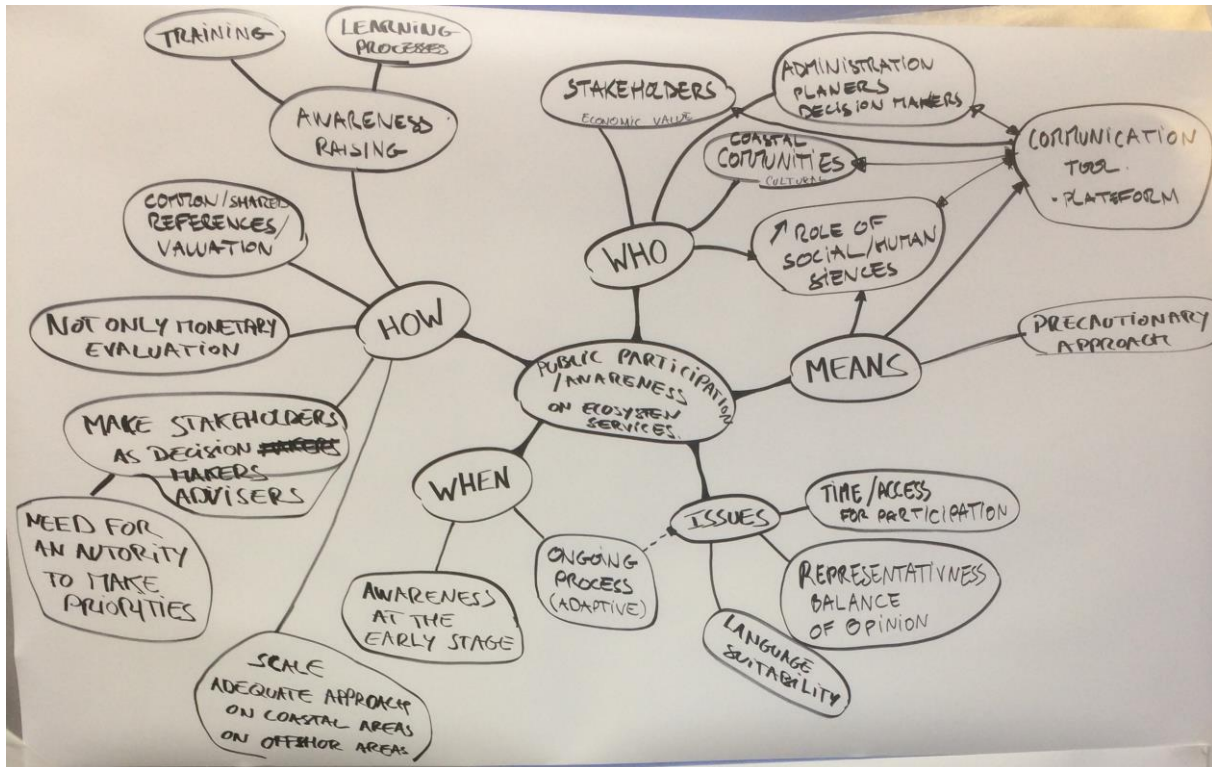 TRAINING
LEARNING
PROCESSES
AWARENESS
RAISING
COMMON/SHARED
REFERENCES/
VALUATION
NOT ONLY MONETARY
EVALUATION
MAKE STAKEHOLDERS
AS DECISION MAKERS
MAKERS
ADVISERS
NEED FOR
AN AUTORITY
TO MAKE
PRIORITIES
SCALE
ADEQUATE APPROACH
ON COASTAL AREAS
ON OFFSHOR AREAS
HOW
PUBLIC PARTICIPATION
/AWARENESS
ON ECOSYSTEM
SERVICES.
WHO
STAKEHOLDERS
ECONOMIC VALUE
ADMINISTRATION
PLANERS
DECISION MAKERS
COASTAL
COMMUNITIES
CULTURAL
↗ ROLE OF
SOCIAL/HUMAN
SIENCES
COMMUNICATION
TOOL.
• PLATEFORM
MEANS
PRECAUTIONARY
APPROACH
WHEN
AWARENESS
AT THE
EARLY STAGE
ONGOING
PROCESS
(ADAPTIVE)
ISSUES
TIME/ACCESS
FOR PARTICIPATION
REPRESENTATIVNESS
BALANCE
OF OPINION
LANGUAGE
SUITABILITY